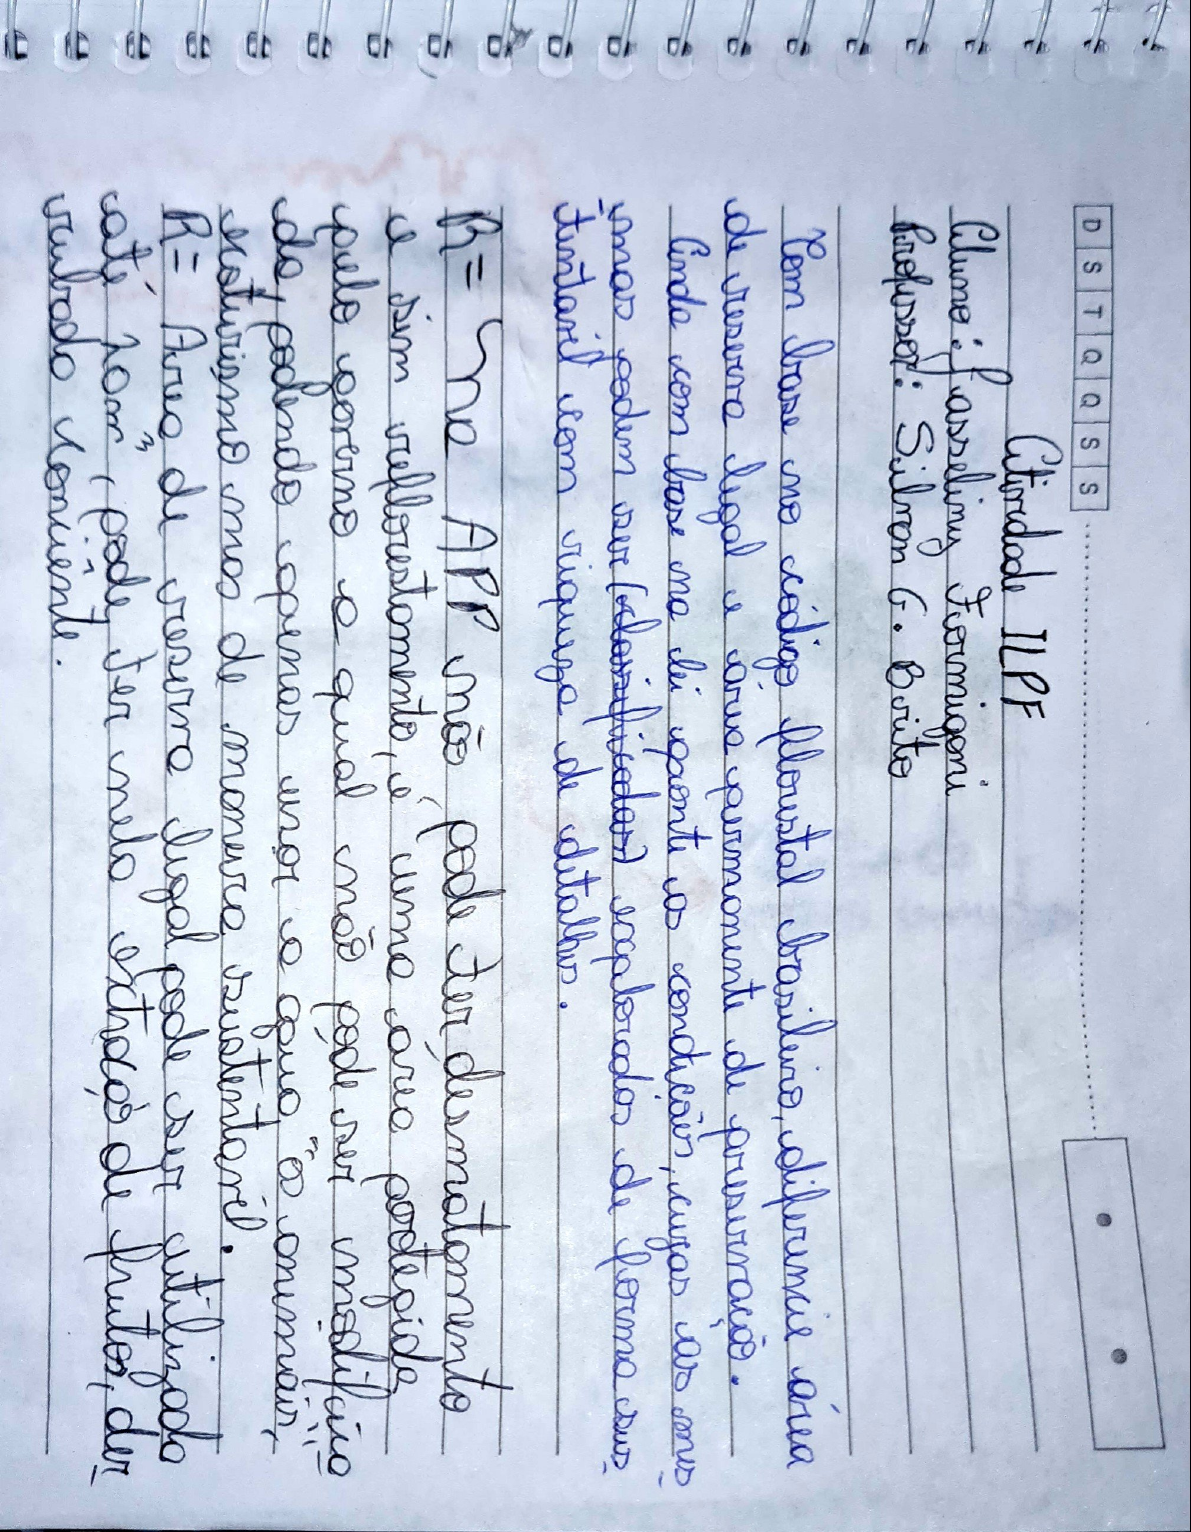 D S T Q Q S S
Atividade ILPF
Aluno: Jasseliny Formigoni
Professor: Silvan G. Brito
Com base no código florestal brasileiro, diferencie área
de reserva legal e área permanente de preservação.
Ainda com base na lei aponte as condições, cujas às mes
mas podem ser (classificadas) exploradas de forma sus
tentavel com riqueza de detalhes.
R= Na APP não pode ter desmatamento
e sim reflorestamento, é uma área protegida
pelo governo a qual não pode ser modifica
da, podendo apenas usar a agua, "os animais,
ecoturismo mas de maneira sustentável.
R= Area de reserva legal pode ser utilizada
até 20%, pode ter nela extração de frutos, der
rubada consiênte.